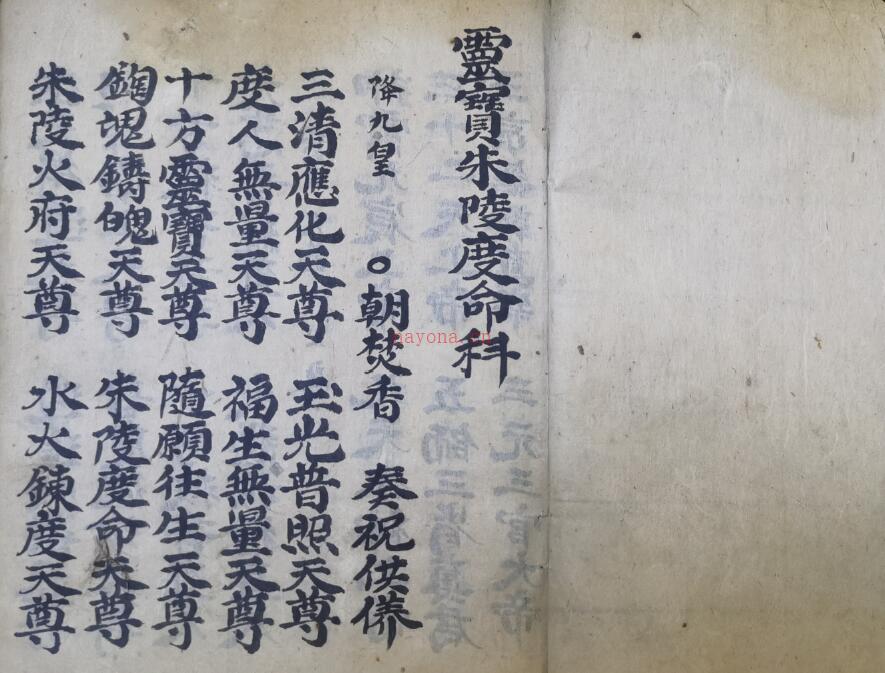 靈寶朱陵度命科
降九皇 ○朝焚香 奏祝供養
三清應化天尊 玉光普照天尊
度人無量天尊 福生無量天尊
十方靈寶天尊 隨願往生天尊
魄天尊 朱陵度命天尊
朱陵火府天尊 水火鍊度天尊
nayona.cn